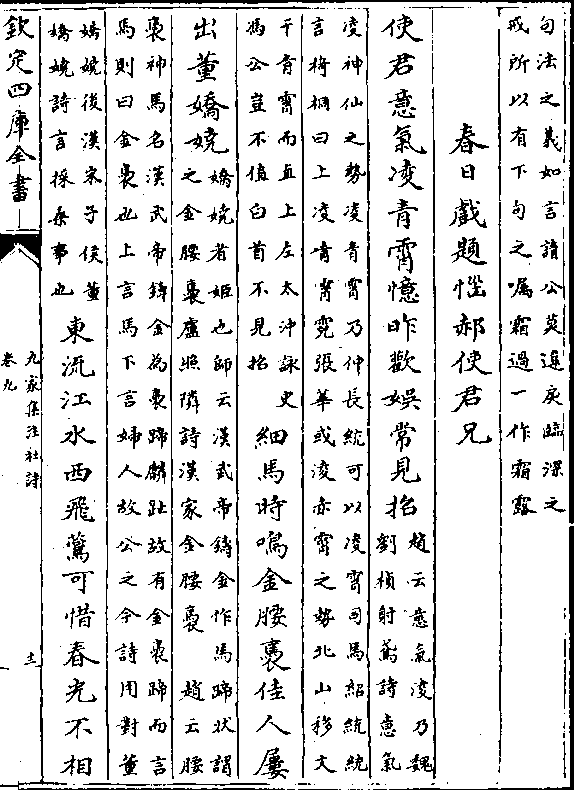 句法之義如言請公莫違戾臨深之
戒所以有下句之嘱霜過一作霜露
春日戲題惱郝使君兄
使君意氣凌青霄憶昨歡娛常見招
趙云意氣凌乃魏
劉楨射鳶詩意氣
凌神仙之勢凌青霄乃仲長統可以凌霄司馬紹統統
言椅桐曰上凌青霄霓張華或凌赤霄之勢北山移文
干青霄而直上左太沖詠史
馮公豈不值白首不見招
細馬時鳴金腰褭佳人屢
出董嬌嬈
嬌嬈者姬也師云漢武帝鑄金作馬蹄狀謂
之金腰褭盧照隣詩漢家金腰褭 趙云腰
褭神馬名漢武帝鑄金為褭蹄麟趾故有金褭蹄而言
馬則曰金褭也上言馬下言婦人故公之今詩用對董
嬌嬈後漢宋子侯董
嬌嬈詩言採桑事也
東流江水西飛鷰可惜春光不相
欽定四庫全書
九家集注杜詩
卷九
十一